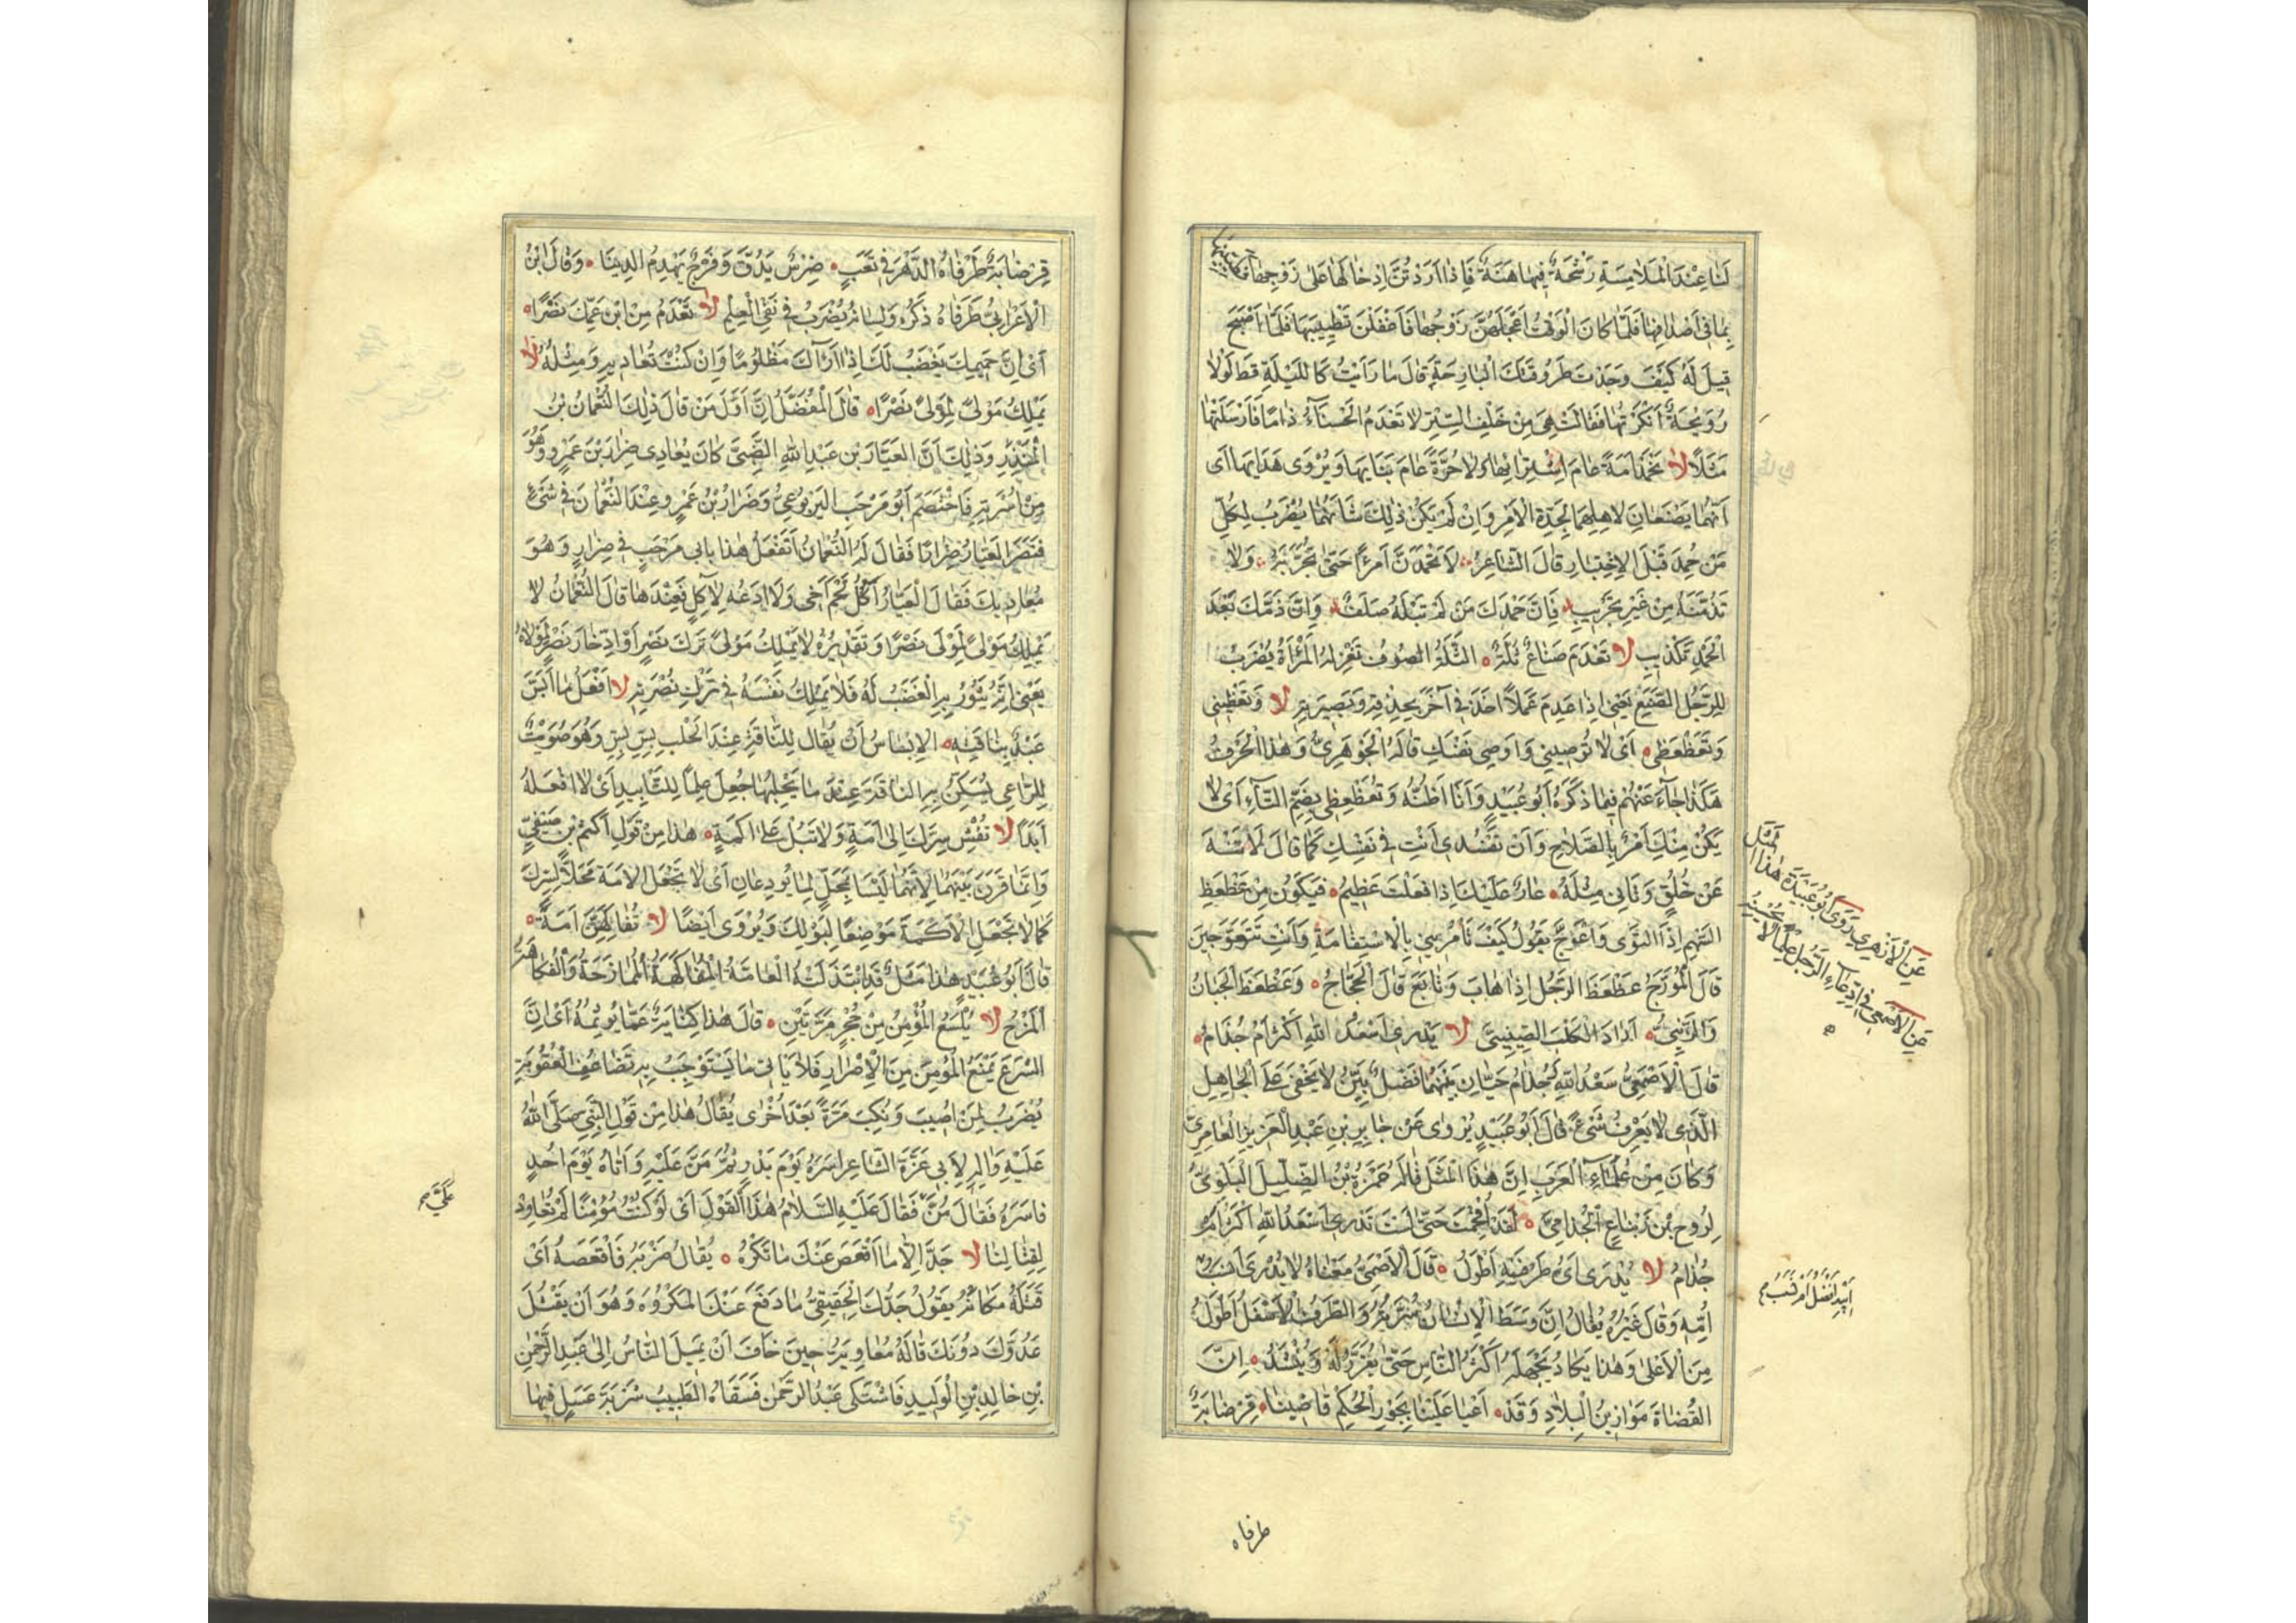 لَنَا عِنْدَ الْمَلَامَسَةِ رَشْحَةٌ فِيهَا هَنَةٌ فَإِذَا أَرَدْتُنَّ إِدْخَالَهَا عَلَى زَوْجِهَا فَطَيِّبْنَهَا
بِمَا فِي أَصْدَافِهَا فَلَمَّا كَانَ الْوَقْتُ أَعْجَلَهُنَّ زَوْجُهَا فَأَغْفَلْنَ تَطْيِيبَهَا فَلَمَّا أَصْبَحَ
قِيلَ لَهُ كَيْفَ وَجَدْتَ طَرُوقَتَكَ الْبَارِحَةَ قَالَ مَا رَأَيْتُ كَاللَّيْلَةِ قَطُّ لَوْلَا
رُوَيْحَةٌ أَنْكَرْتُهَا فَقَالَتْ هِيَ مِنْ خَلْفِ السِّتْرِ لَا تَعْدَمُ الْحَسْنَاءُ ذَامًا فَأَرْسَلَتْهَا
مَثَلًا لَا تَحْمَدْ أَمَةً عَامَ اشْتِرَائِهَا وَلَا حُرَّةً عَامَ بَنَائِهَا وَيُرْوَى هَدَائِهَا أَيْ
أَنَّهُمَا يَصْنَعَانِ لِأَهْلِهِمَا لِجِدَّةِ الْأَمْرِ وَإِنْ لَمْ يَكُنْ ذَلِكَ شَأْنَهُمَا يُضْرَبُ لِكُلِّ
مَنْ حُمِدَ قَبْلَ الِاخْتِبَارِ قَالَ الشَّاعِرُ لَا تَحْمَدَنَّ امْرَأً حَتَّى تُجَرِّبَهُ وَلَا
تَذُمَّنَّهُ مِنْ غَيْرِ تَجْرِيبِ فَإِنَّ حَمْدَكَ مَنْ لَمْ تَبْلُهُ صَلَفٌ وَإِنَّ ذَمَّكَ بَعْدَ
الْحَمْدِ تَكْذِيبِ لَا تَعْدَمُ صَنَاعٌ ثُلَّةً الثَّلَّةُ الصُّوفُ تَغْزِلُهُ الْمَرْأَةُ يُضْرَبُ
لِلرَّجُلِ الصَّنِيعِ يَعْنِي إِذَا عَدِمَ عَمَلًا أَخَذَ فِي آخَرَ بِحِذْقِهِ وَبَصِيرَتِهِ لَا تَعِظِينِي
وَتَعَظْعَظِي أَيْ لَا تُوصِينِي وَأَوْصِي نَفْسَكِ قَالَهُ الْجَوْهَرِيُّ وَهَذَا الْحَرْفُ
هَكَذَا جَاءَ عَنْهُمْ فِيمَا ذَكَرَهُ أَبُو عُبَيْدٍ وَأَنَا أَظُنُّهُ وَتُعَظْعِظِي بِضَمِّ التَّاءِ أَيْ لَا
يَكُنْ مِنْكِ أَمْرٌ بِالصَّلَاحِ وَأَنْ تَفْسُدِي أَنْتِ فِي نَفْسِكِ كَمَا قَالَ لَا تَنْهَ
عَنْ خُلُقٍ وَتَأْتِيَ مِثْلَهُ عَارٌ عَلَيْكَ إِذَا فَعَلْتَ عَظِيمُ فَيَكُونُ مِنْ عَظْعَظَ
السَّهْمُ إِذَا الْتَوَى وَاعْوَجَّ يَقُولُ كَيْفَ تَأْمُرِينِي بِالِاسْتِقَامَةِ وَأَنْتِ تَتَعَوَّجِينَ
قَالَ الْمُؤَرِّجُ عَظْعَظَ الرَّجُلُ إِذَا هَابَ وَتَابَعَ قَالَ الْعَجَّاجُ وَعَظْعَظَ الْجَبَانُ
وَالزِّئْنِيُّ أَرَادَ الْكَلْبَ الصِّينِيَّ لَا يَدْرِي أَسَعْدُ اللهِ أَكْثَرُ أَمْ جُذَامُ
قَالَ الْأَصْمَعِيُّ سَعْدُ اللهِ وَجُذَامُ حَيَّانِ بَيْنَهُمَا فَضْلٌ بَيِّنٌ لَا يَخْفَى عَلَى الْجَاهِلِ
الَّذِي لَا يَعْرِفُ شَيْئًا قَالَ أَبُو عُبَيْدٍ يُرْوَى عَنْ جَابِرِ بْنِ عَبْدِ الْعَزِيزِ الْعَامِرِيِّ
وَكَانَ مِنْ عُلَمَاءِ الْعَرَبِ إِنَّ هَذَا الْمَثَلَ قَالَهُ حَمْزَةُ بْنُ الضَّلِيلِ الْبَلَوِيُّ
لِرَوْحِ بْنِ زِنْبَاعِ الْجُذَامِيِّ لَقَدْ أُفْحِمْتَ حَتَّى لَسْتَ تَدْرِي أَسَعْدُ اللهِ أَكْثَرُ أَمْ
جُذَامُ لَا يُدْرَى أَيُّ طَرَفَيْهِ أَطْوَلُ قَالَ الْأَصْمَعِيُّ مَعْنَاهُ لَا يُدْرَى أَنَسَبُ
أُمِّهِ وَقَالَ غَيْرُهُ يُقَالُ إِنَّ وَسَطَ الْإِنْسَانِ سُرَّتُهُ وَالطَّرَفُ الْأَسْفَلُ أَطْوَلُ
مِنَ الْأَعْلَى وَهَذَا يَكَادُ يَجْهَلُهُ أَكْثَرُ النَّاسِ حَتَّى يُقَرَّرَ لَهُ وَيُنْشَدُ إِنَّ
الْقُضَاةَ مَوَازِينُ الْبِلَادِ وَقَدْ أَعْيَا عَلَيْنَا بِجَوْرِ الْحُكْمِ قَاضِينَا قِرْضَابَةٌ
عَنِ الْأَزْهَرِيِّ رَوَى أَبُو عُبَيْدَةَ هَذَا الْمَثَلَ
عَنِ الْأَصْمَعِيِّ فِي ادِّعَاءِ الرَّجُلِ عِلْمًا لَا يُحْسِنُهُ
أَبِيهِ أَفْضَلُ أَمْ نَسَبُ
طرفاه
قِرْضَابَةٌ طَرَفَاهُ الدَّهْرَ فِي تَعَبٍ ضِرْسٌ يَدُقُّ وَفَرْجٌ يَهْدِمُ الدِّينَا وَقَالَ ابْنُ
الْأَعْرَابِيِّ طَرَفَاهُ ذَكَرُهُ وَلِسَانُهُ يُضْرَبُ فِي نَفْيِ الْعِلْمِ لَا تَعْدَمُ مِنِ ابْنِ عَمِّكَ نَصْرًا
أَيْ إِنَّ حَمِيمَكَ يَغْضَبُ لَكَ إِذَا رَآكَ مَظْلُومًا وَإِنْ كُنْتَ تُعَادِيهِ وَمِثْلُهُ لَا
يَمْلِكُ مَوْلًى لِمَوْلًى نَصْرًا قَالَ الْمُفَضَّلُ إِنَّ أَوَّلَ مَنْ قَالَ ذَلِكَ النُّعْمَانُ بْنُ
الْمُنْذِرِ وَذَلِكَ أَنَّ الْعَيَّارَ بْنَ عَبْدِ اللهِ الضَّبِّيَّ كَانَ يُعَادِي ضِرَارَ بْنَ عَمْرٍو وَهُوَ
مِنْ أُسْرَتِهِ فَاخْتَصَمَ أَبُو مَرْحَبٍ الْيَرْبُوعِيُّ وَضِرَارُ بْنُ عَمْرٍو عِنْدَ النُّعْمَانِ فِي شَيْءٍ
فَنَصَرَ الْعَيَّارُ ضِرَارًا فَقَالَ لَهُ النُّعْمَانُ أَتَفْعَلُ هَذَا بِأَبِي مَرْحَبٍ فِي ضِرَارٍ وَهُوَ
مُعَادِيكَ فَقَالَ الْعَيَّارُ آكُلُ لَحْمَ أَخِي وَلَا أَدَعُهُ لِآكِلٍ فَعِنْدَهَا قَالَ النُّعْمَانُ لَا
يَمْلِكُ مَوْلًى لِمَوْلًى نَصْرًا وَتَقْدِيرُهُ لَا يَمْلِكُ مَوْلًى تَرْكَ نَصْرٍ أَوِ ادِّخَارَ نَصْرٍ لِمَوْلَاهُ
يَعْنِي أَنَّهُ يَثُورُ بِهِ الْغَضَبُ لَهُ فَلَا يَمْلِكُ نَفْسَهُ فِي تَرْكِ نُصْرَتِهِ لَا أَفْعَلُ مَا أَبَسَّ
عَبْدٌ بِنَاقَتِهِ الْإِبْسَاسُ أَنْ يُقَالَ لِلنَّاقَةِ عِنْدَ الْحَلْبِ بِسْ بِسْ وَهُوَ صُوَيْتٌ
لِلرَّاعِي يُسَكِّنُ بِهِ النَّاقَةَ عِنْدَ مَا يَحْلِبُهَا جُعِلَ عَلَمًا لِلتَّأْبِيدِ أَيْ لَا أَفْعَلُهُ
أَبَدًا لَا تُفْشِ سِرَّكَ إِلَى أَمَةٍ وَلَا تَبُلْ عَلَى أَكَمَةٍ هَذَا مِنْ قَوْلِ أَكْثَمَ بْنِ صَيْفِيٍّ
وَإِنَّمَا قَرَنَ بَيْنَهُمَا لِأَنَّهُمَا لَيْسَا بِمَحَلٍّ لِمَا يُودَعَانِ أَيْ لَا تَجْعَلِ الْأَمَةَ مَحَلًّا لِسِرِّكَ
كَمَا لَا تَجْعَلُ الْأَكَمَةَ مَوْضِعًا لِبَوْلِكَ وَيُرْوَى أَيْضًا لَا تُفَاكِهَنَّ أَمَةً
قَالَ أَبُو عُبَيْدٍ هَذَا مَثَلٌ قَدِ ابْتَذَلَتْهُ الْعَامَّةُ الْمُفَاكَهَةُ الْمُمَازَحَةُ وَالْفُكَاهَةُ
الْمَزْحُ لَا يُلْسَعُ الْمُؤْمِنُ مِنْ جُحْرٍ مَرَّتَيْنِ قَالَ هَذَا كِنَايَةٌ عَمَّا يُؤْثِمُهُ أَيْ إِنَّ
الشَّرْعَ يَمْنَعُ الْمُؤْمِنَ مِنَ الْإِصْرَارِ فَلَا يَأْتِي مَا يَسْتَوْجِبُ بِهِ تَضَاعُفَ الْعُقُوبَةِ
يُضْرَبُ لِمَنْ أُصِيبَ وَنُكِبَ مَرَّةً بَعْدَ أُخْرَى يُقَالُ هَذَا مِنْ قَوْلِ النَّبِيِّ صَلَّى اللهُ
عَلَيْهِ وَآلِهِ لِأَبِي عَزَّةَ الشَّاعِرِ أَسَرَهُ يَوْمَ بَدْرٍ ثُمَّ مَنَّ عَلَيْهِ وَأَتَاهُ يَوْمَ أُحُدٍ
فَأَسَرَهُ فَقَالَ مُنَّ فَقَالَ عَلَيْهِ السَّلَامُ هَذَا الْقَوْلَ أَيْ لَوْ كُنْتَ مُؤْمِنًا لَمْ تُعَاوِدْ
لِقِتَالِنَا لَا جَدَّ إِلَّا مَا أَقْعَصَ عَنْكَ مَا تَكْرَهُ يُقَالُ ضَرَبَهُ فَأَقْعَصَهُ أَيْ
قَتَلَهُ مَكَانَهُ يَقُولُ جَدُّكَ الْحَقِيقِيُّ مَا دَفَعَ عَنْكَ الْمَكْرُوهَ وَهُوَ أَنْ يَقْتُلَ
عَدُوَّكَ دُونَكَ قَالَهُ مُعَاوِيَةُ حِينَ خَافَ أَنْ يَمِيلَ النَّاسُ إِلَى عَبْدِ الرَّحْمٰنِ
بْنِ خَالِدِ بْنِ الْوَلِيدِ فَاشْتَكَى عَبْدُ الرَّحْمٰنِ فَسَقَاهُ الطَّبِيبُ شَرْبَةَ عَسَلٍ فِيهَا
عَلَيَّ